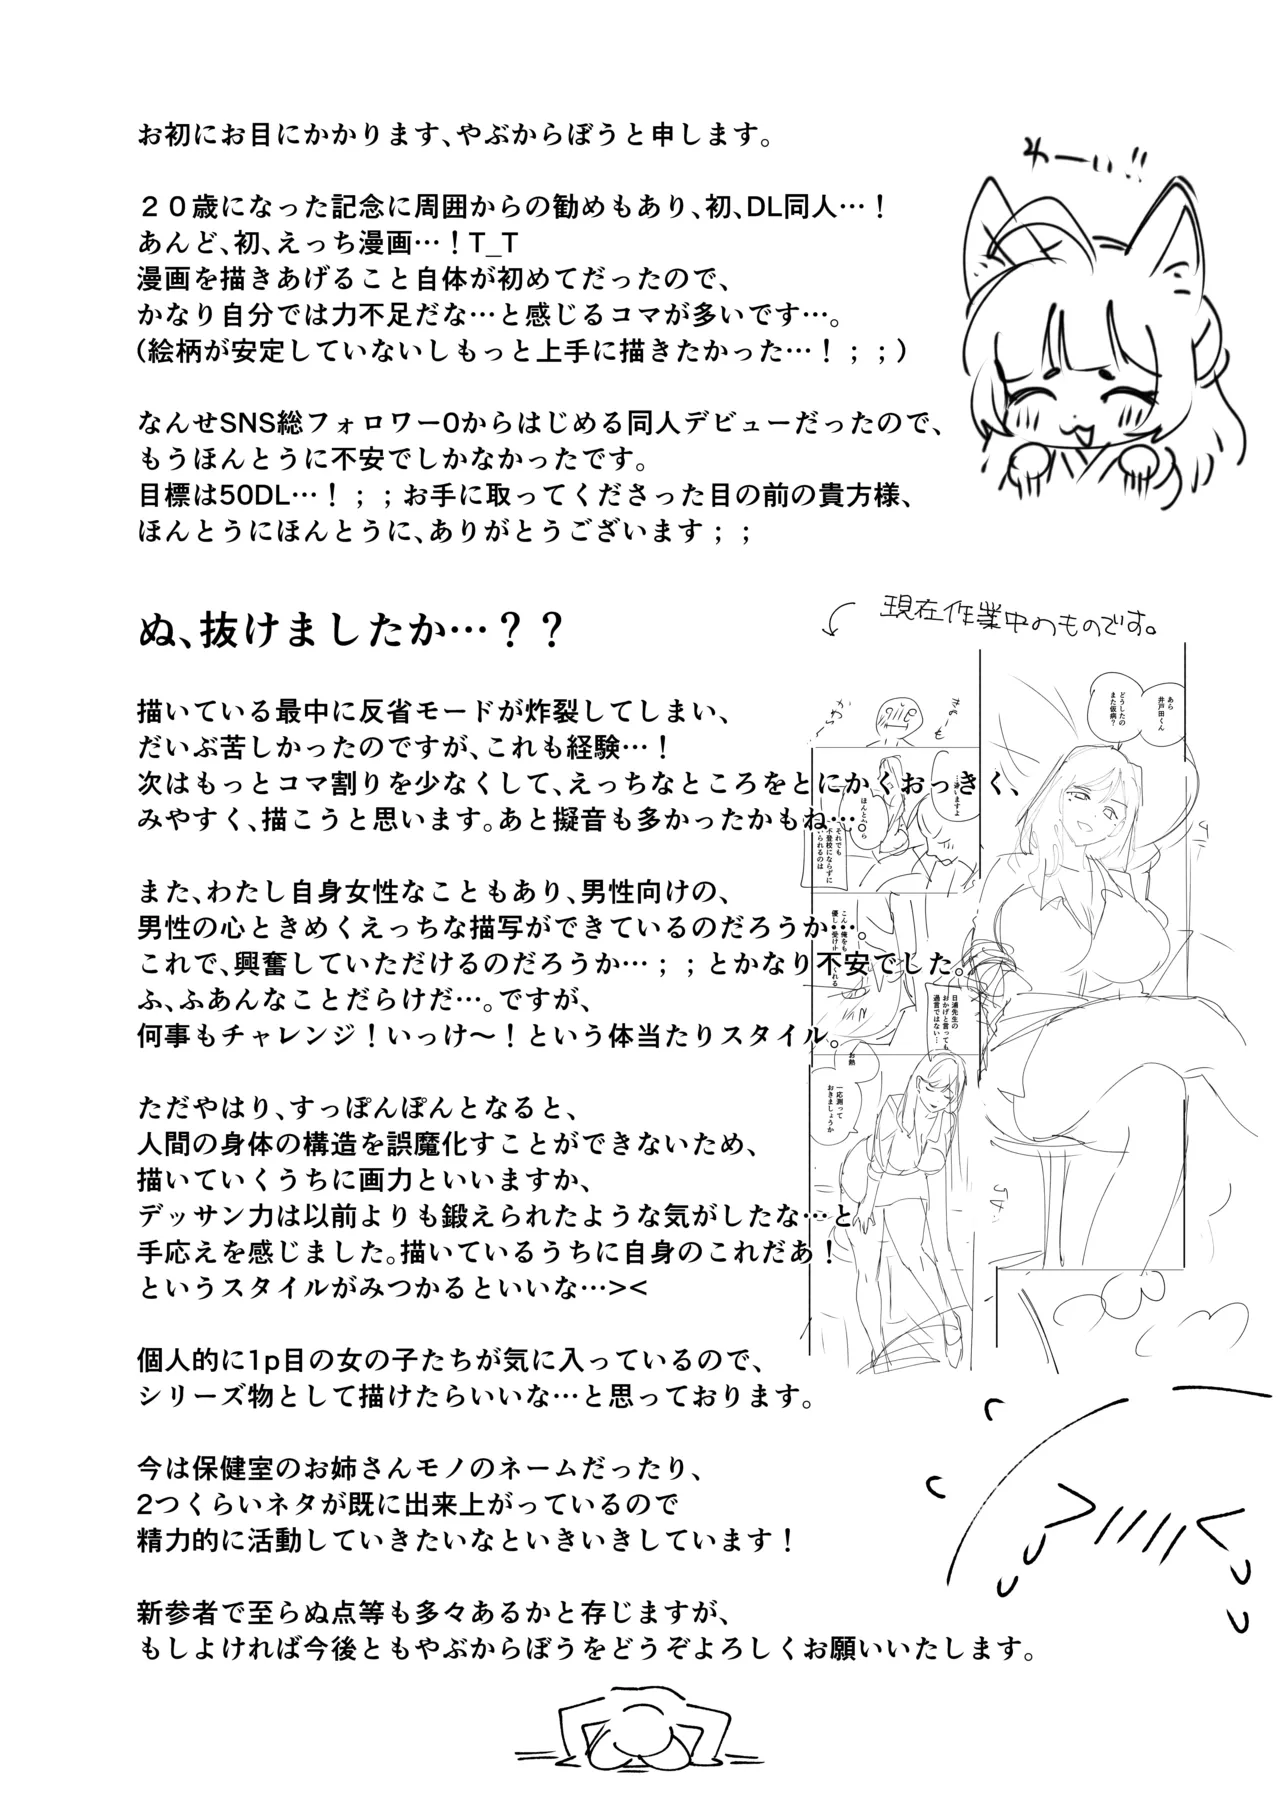 お初にお目にかかります、やぶからぼうと申します。
わーい!!
２０歳になった記念に周囲からの勧めもあり、初、DL同人…！
あんど、初、えっち漫画…！T_T
漫画を描きあげること自体が初めてだったので、
かなり自分では力不足だな…と感じるコマが多いです…。
(絵柄が安定していないしもっと上手に描きたかった…！；；)
なんせSNS総フォロワー0からはじめる同人デビューだったので、
もうほんとうに不安でしかなかったです。
目標は50DL…！；；お手に取ってくださった目の前の貴方様、
ほんとうにほんとうに、ありがとうございます；；
ぬ、抜けましたか…？？
現在作業中のものです。
描いている最中に反省モードが炸裂してしまい、
だいぶ苦しかったのですが、これも経験…！
次はもっとコマ割りを少なくして、えっちなところをとにかくおっきく、
みやすく、描こうと思います。あと擬音も多かったかもね…。
また、わたし自身女性なこともあり、男性向けの、
男性の心ときめくえっちな描写ができているのだろうか…。
これで、興奮していただけるのだろうか…；；とかなり不安でした。
ふ、ふあんなことだらけだ…。ですが、
何事もチャレンジ！いっけ〜！という体当たりスタイル。
ただやはり、すっぽんぽんとなると、
人間の身体の構造を誤魔化すことができないため、
描いていくうちに画力といいますか、
デッサン力は以前よりも鍛えられたような気がしたな…と
手応えを感じました。描いているうちに自身のこれだあ！
というスタイルがみつかるといいな…><
個人的に1p目の女の子たちが気に入っているので、
シリーズ物として描けたらいいな…と思っております。
今は保健室のお姉さんモノのネームだったり、
2つくらいネタが既に出来上がっているので
精力的に活動していきたいなといきいきしています！
新参者で至らぬ点等も多々あるかと存じますが、
もしよければ今後ともやぶからぼうをどうぞよろしくお願いいたします。
あら
井戸田くん
どうしたの
また仮病？
それでも
不登校にならずに
いられるのは
日浦先生の
おかげと言っても
過言ではない…
お熱
一応測って
おきましょうか